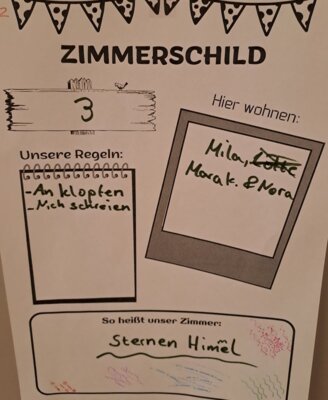 2
ZIMMERSCHILD
3
Hier wohnen:
Mila, Lotte
Mara k. & Nora
Unsere Regeln:
- An klopfen
- Nich schreien
So heißt unser Zimmer:
Sternen Himmel